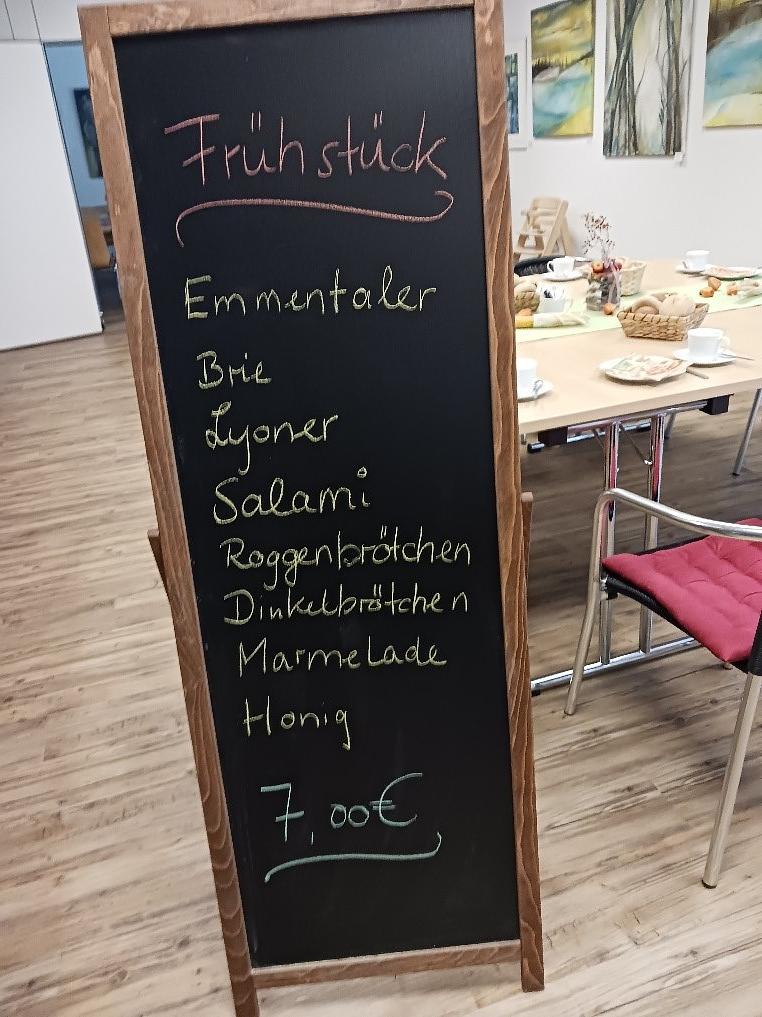 Frühstück
Emmentaler
Brie
Lyoner
Salami
Roggenbrötchen
Dinkelbrötchen
Marmelade
Honig
7,00€